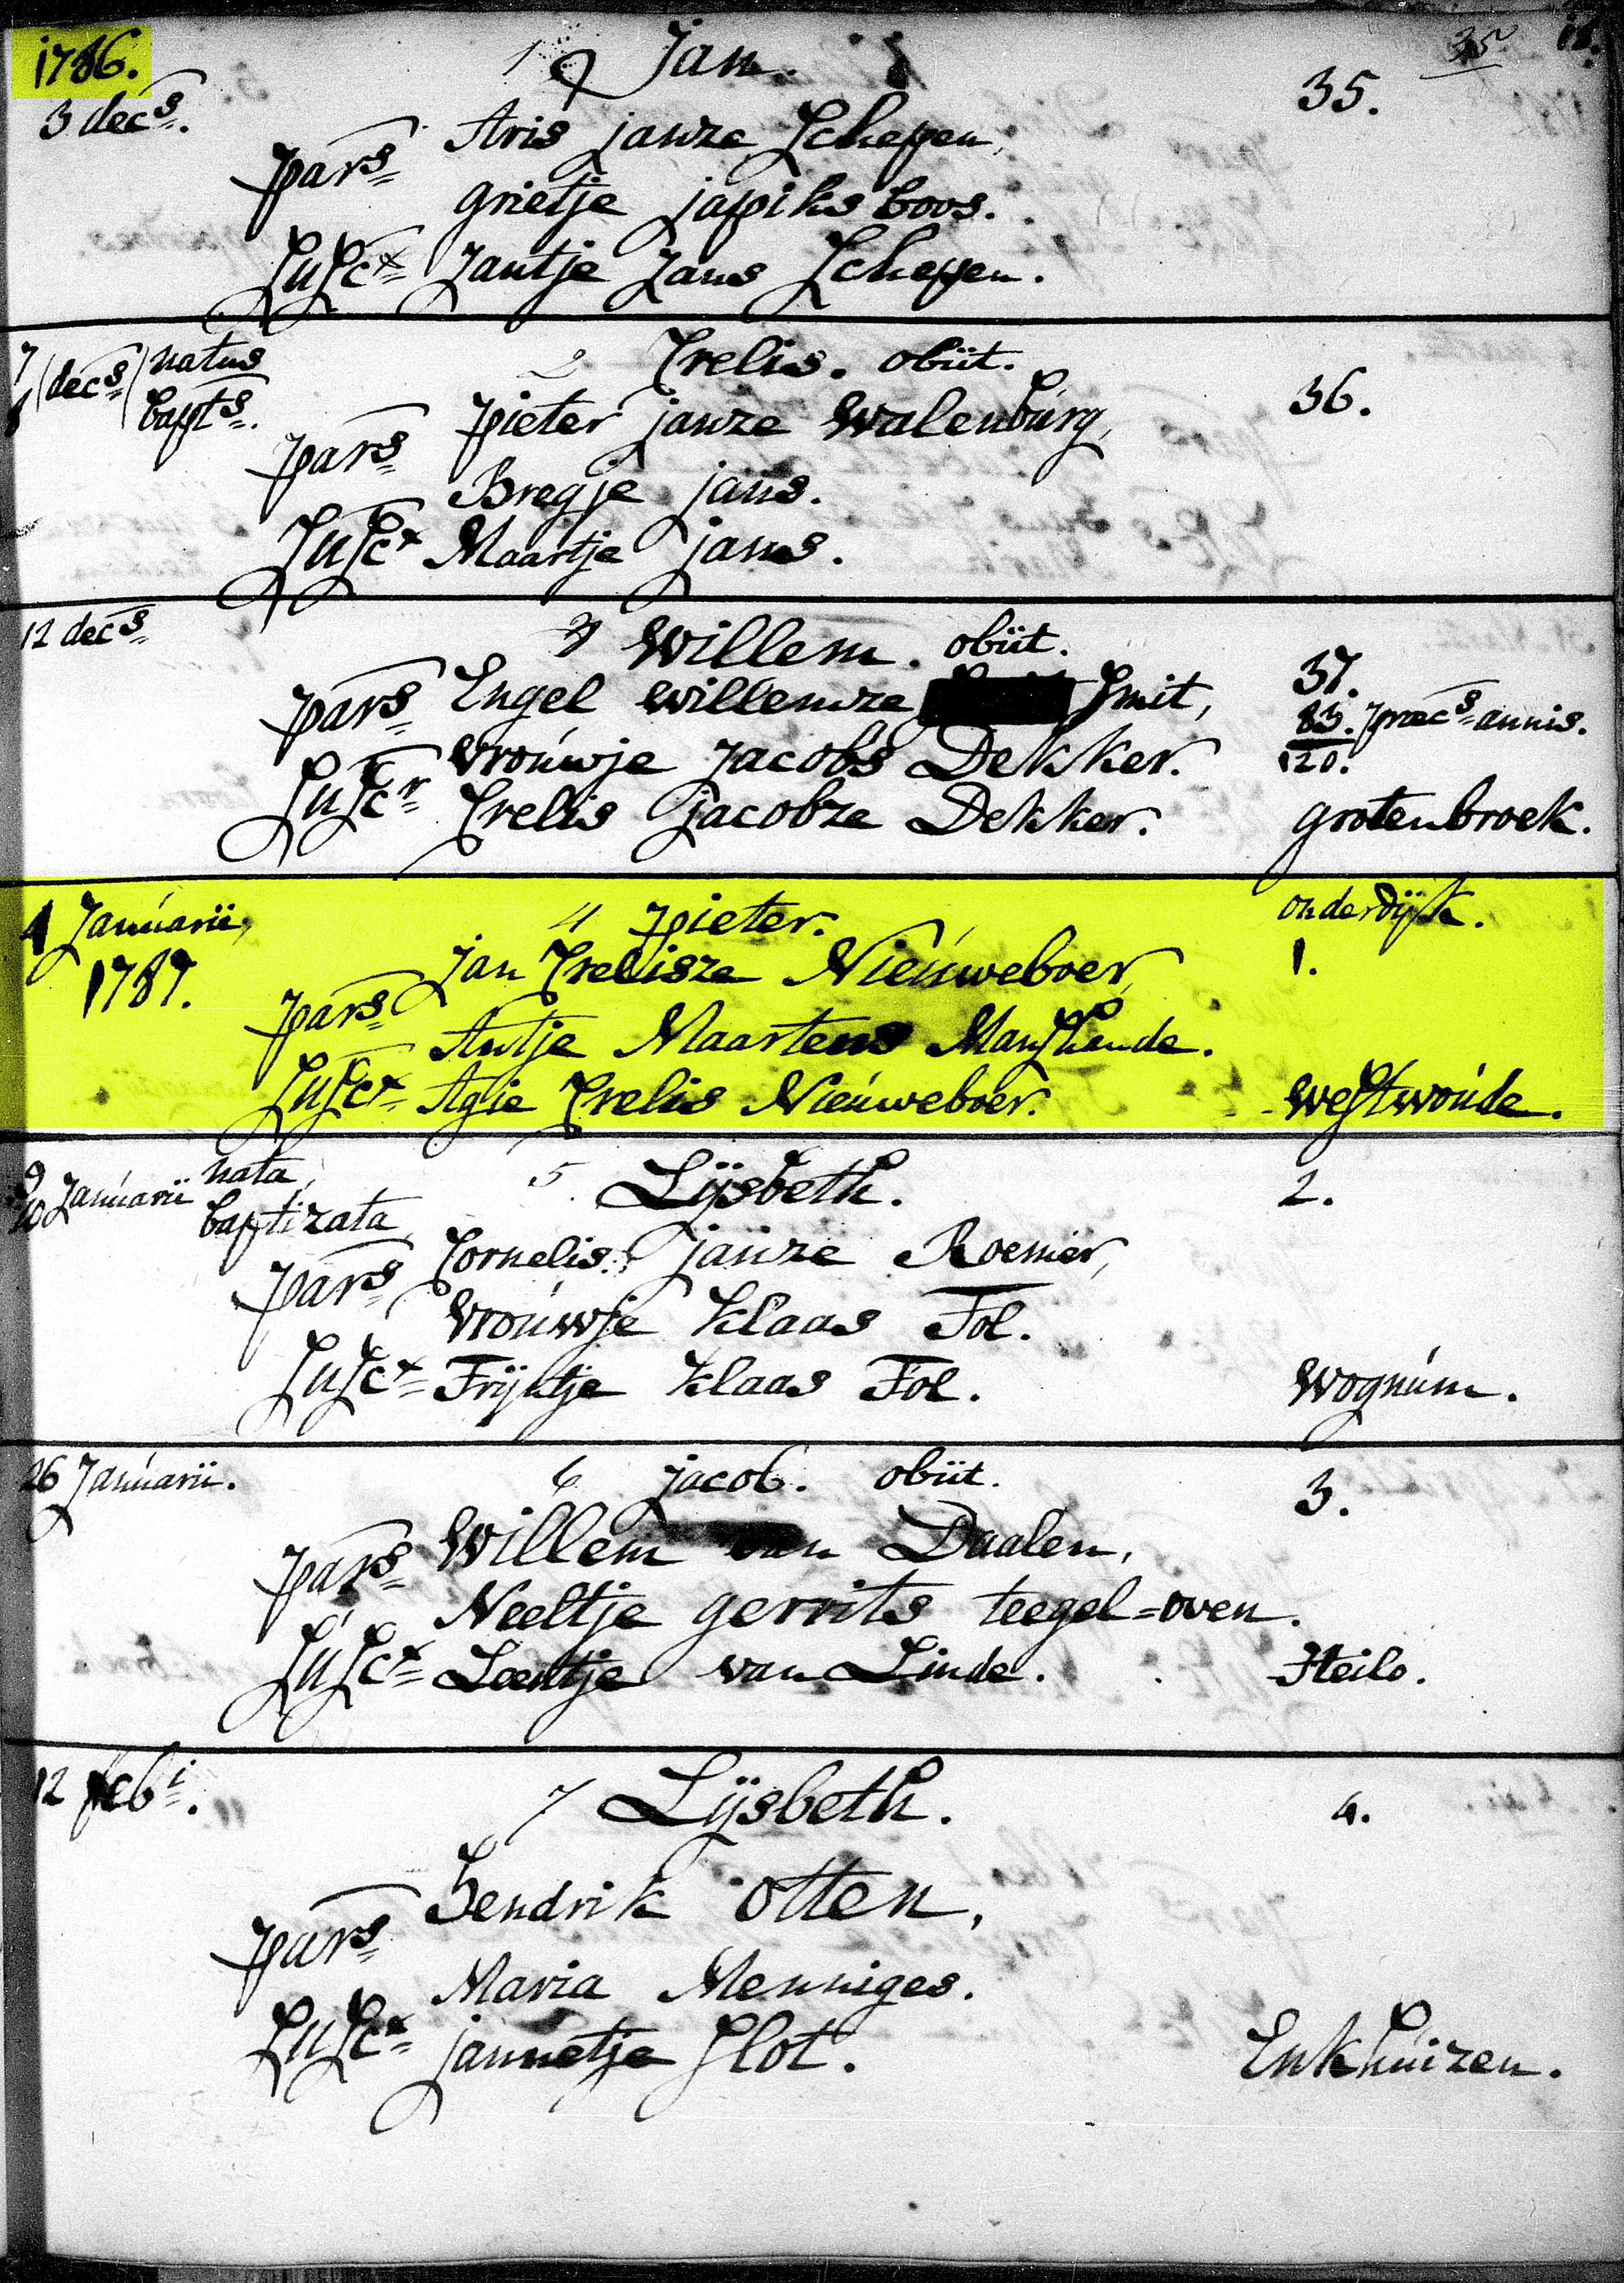 1786. 1 Jan. 35
3 decs. 35.
pars Aris janze Schepen,
grietje japiks boos.
SuScx Jantje Jans Schepen.
7 decs natus 2 Crelis. obiit.
8 bapts. 36.
pars pieter janze Walenburg,
Bregje jans.
SuScx Maartje jans.
12 decs 3 Willem. obiit.
37.
pars Engel willemze Smit,
83. præcs annis.
vrouwje Jacobs Dekker. 120.
SuScr Crelis Jacobze Dekker. grotenbroek.
4 Januarii, 4 pieter. onderdijk.
1787. jan Crelisze Nieuweboer, 1.
pars Antje Maartens Manshande.
SuScx Agie Crelis Nieuweboer. Westwoude.
9 nata, 5. Lijsbeth. 2.
10 Januarii baptizata
pars Cornelis janze Roemer,
Vrouwje Klaas Fol.
SuScx Trijntje Klaas Fol. Wognum.
26 Januarii. 6 jacob. obiit. 3.
pars Willem van Daalen,
Neeltje gerrits teegel=oven.
SuScx Leentje van Linde. Heilo.
12 febi. 7 Lijsbeth. 4.
Hendrik otten,
pars
Maria Menniges.
SuScx jannetje Slot. Enkhuizen.